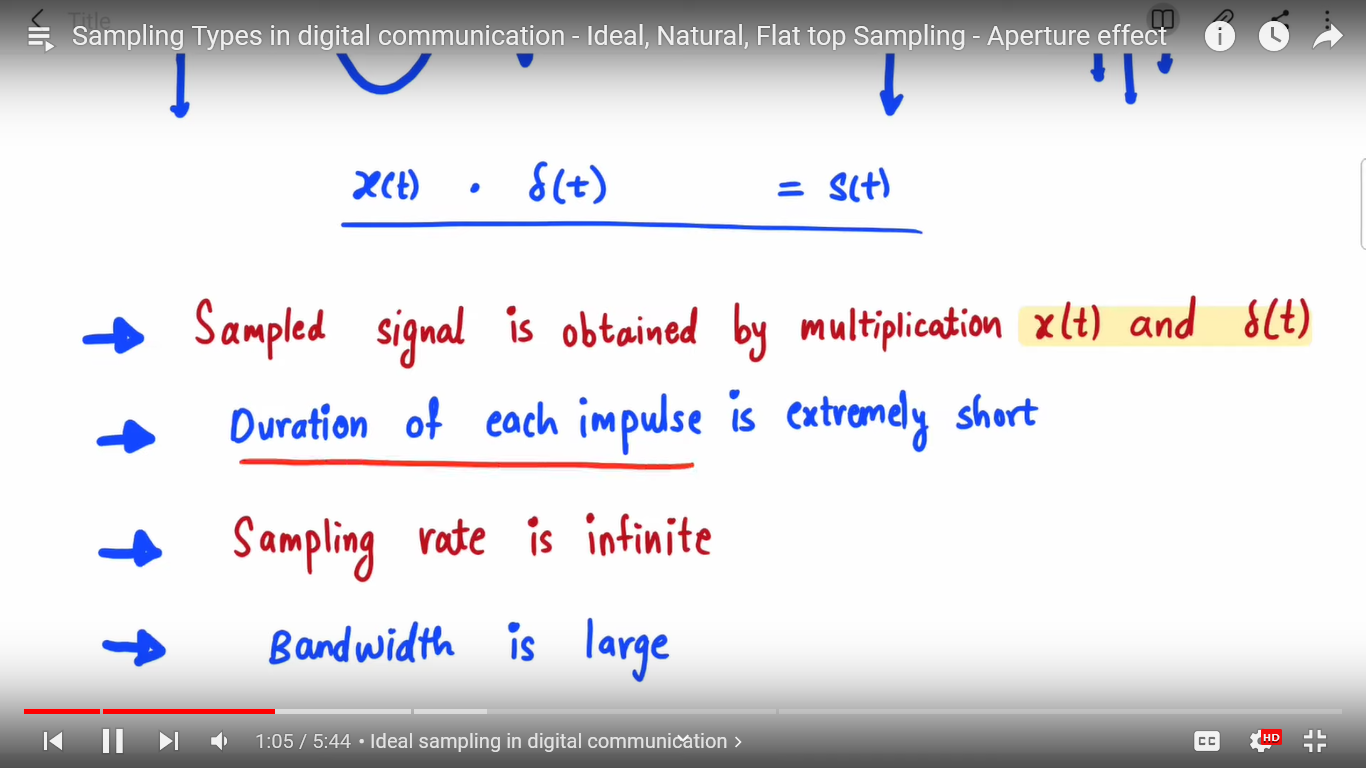 Title
Sampling Types in digital communication - Ideal, Natural, Flat top Sampling - Aperture effect
x(t) . δ(t) = s(t)
Sampled signal is obtained by multiplication x(t) and δ(t)
Duration of each impulse is extremely short
Sampling rate is infinite
Bandwidth is large
1:05 / 5:44 • Ideal sampling in digital communication >
CC
HD